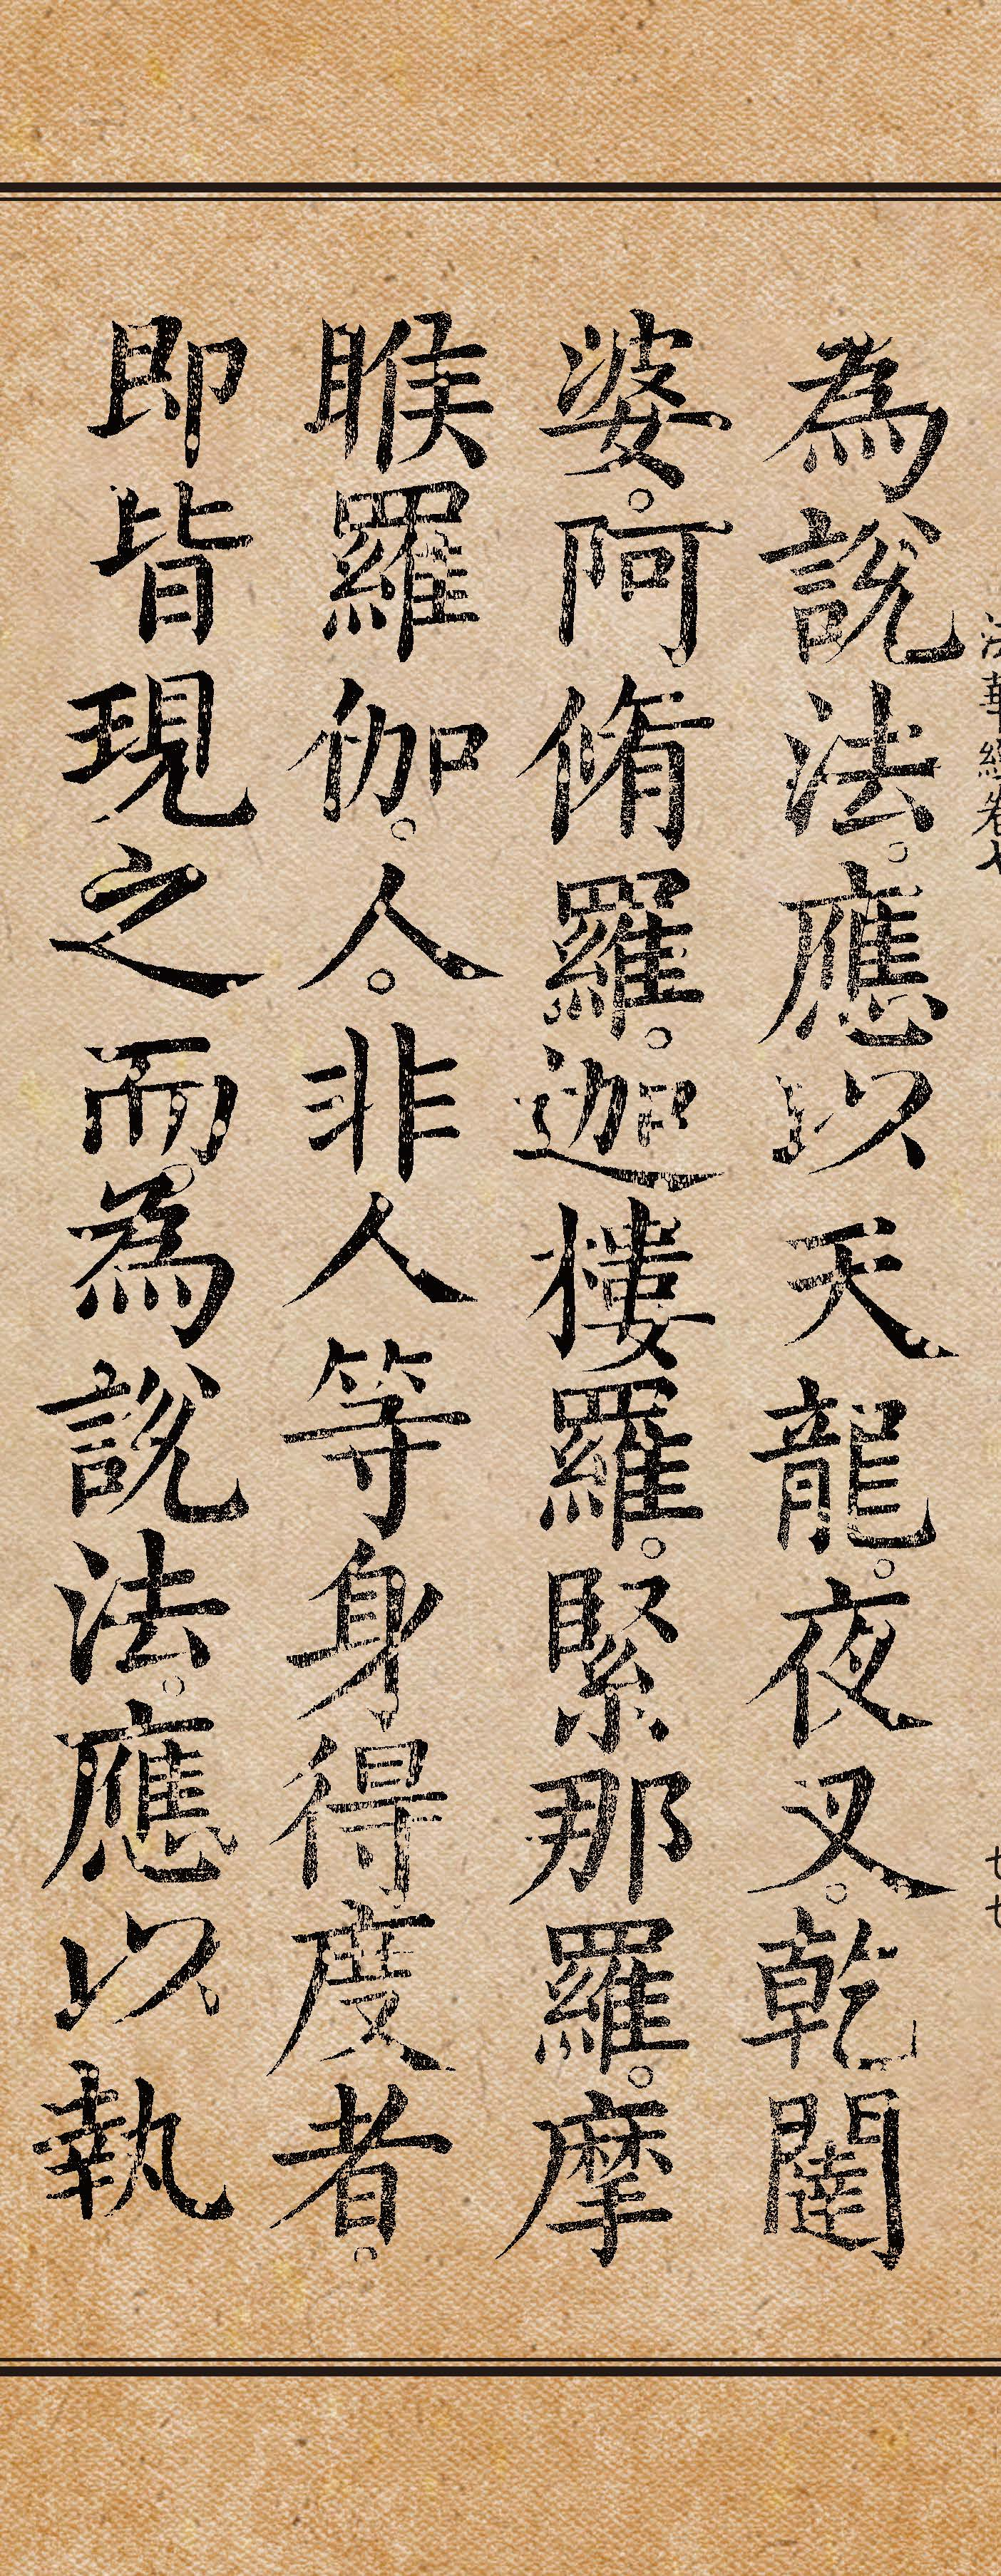 法華經卷七
七七
為說法。應以天龍。夜叉。乾闥
婆。阿脩羅。迦樓羅。緊那羅。摩
睺羅伽。人。非人等身得度者。
即皆現之而為說法。應以執